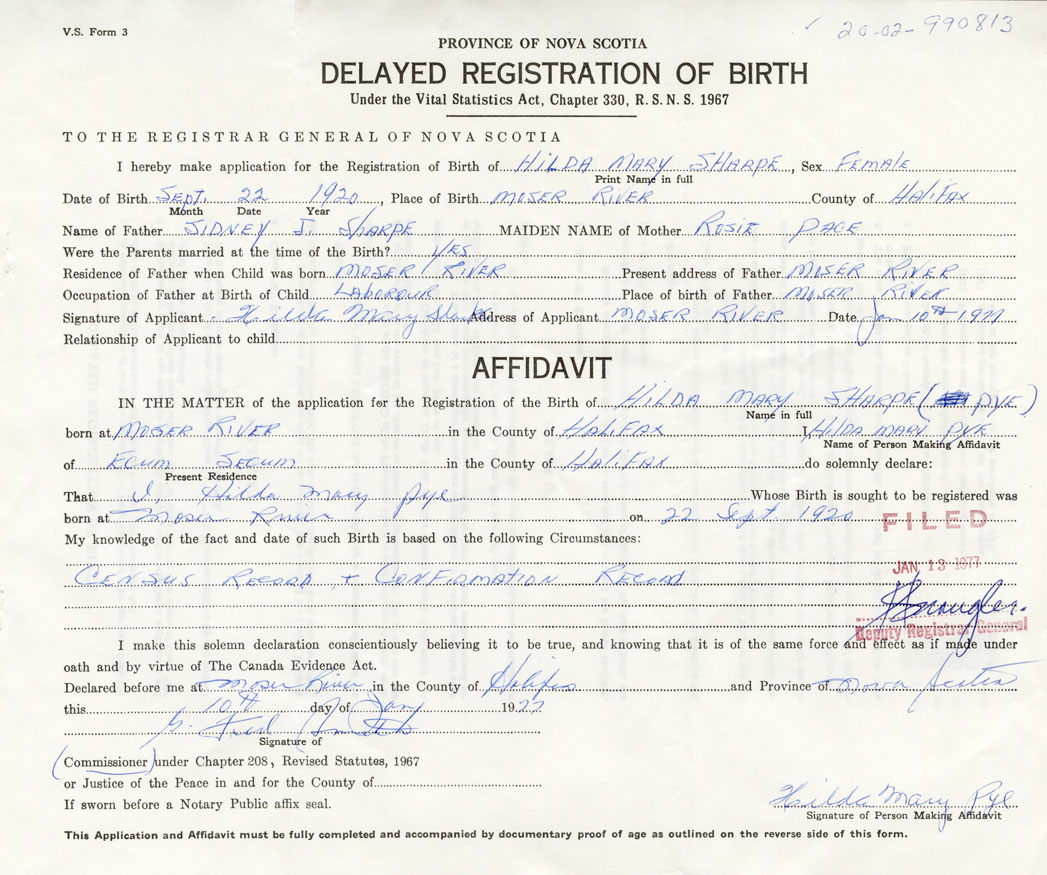 V.S. Form 3
✓ 20-02-990813
PROVINCE OF NOVA SCOTIA
DELAYED REGISTRATION OF BIRTH
Under the Vital Statistics Act, Chapter 330, R.S.N.S. 1967
TO THE REGISTRAR GENERAL OF NOVA SCOTIA
I hereby make application for the Registration of Birth of HILDA MARY SHARPE, Sex FEMALE
Print Name in full
Date of Birth SEPT. 22 1920, Place of Birth MOSER RIVER County of HALIFAX
Month Date Year
Name of Father SIDNEY J. SHARPE MAIDEN NAME of Mother ROSIE PACE
Were the Parents married at the time of the Birth? YES
Residence of Father when Child was born MOSER RIVER Present address of Father MOSER RIVER
Occupation of Father at Birth of Child LABOROUR Place of birth of Father MOSER RIVER
Signature of Applicant Hilda Mary Address of Applicant MOSER RIVER Date Jan 10th 1977
Relationship of Applicant to child
AFFIDAVIT
IN THE MATTER of the application for the Registration of the Birth of HILDA MARY SHARPE (PYE)
Name in full
born at MOSER RIVER in the County of HALIFAX I, HILDA MARY PYE
Name of Person Making Affidavit
of ECUM SECUM in the County of HALIFAX do solemnly declare:
Present Residence
That I, Hilda Mary Pye Whose Birth is sought to be registered was
born at Moser River on 22 Sept. 1920
FILED
My knowledge of the fact and date of such Birth is based on the following Circumstances:
JAN 13 1977
CENSUS RECORD + CONFIRMATION RECORD
Deputy Registrar General
I make this solemn declaration conscientiously believing it to be true, and knowing that it is of the same force and effect as if made under
oath and by virtue of The Canada Evidence Act.
Declared before me at Moser River in the County of Halifax and Province of Nova Scotia
this 10th day of Jany 1977
G. Fred Smith
Signature of
(Commissioner) under Chapter 208, Revised Statutes, 1967
or Justice of the Peace in and for the County of
If sworn before a Notary Public affix seal.
Hilda Mary Pye
Signature of Person Making Affidavit
This Application and Affidavit must be fully completed and accompanied by documentary proof of age as outlined on the reverse side of this form.